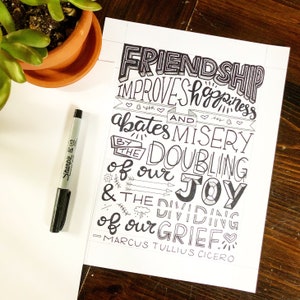 FRIENDSHIP
IMPROVES happiness
AND
abates MISERY
BY THE DOUBLING
of our JOY
& THE DIVIDING
of our GRIEF
- MARCUS TULLIUS CICERO
Sharpie